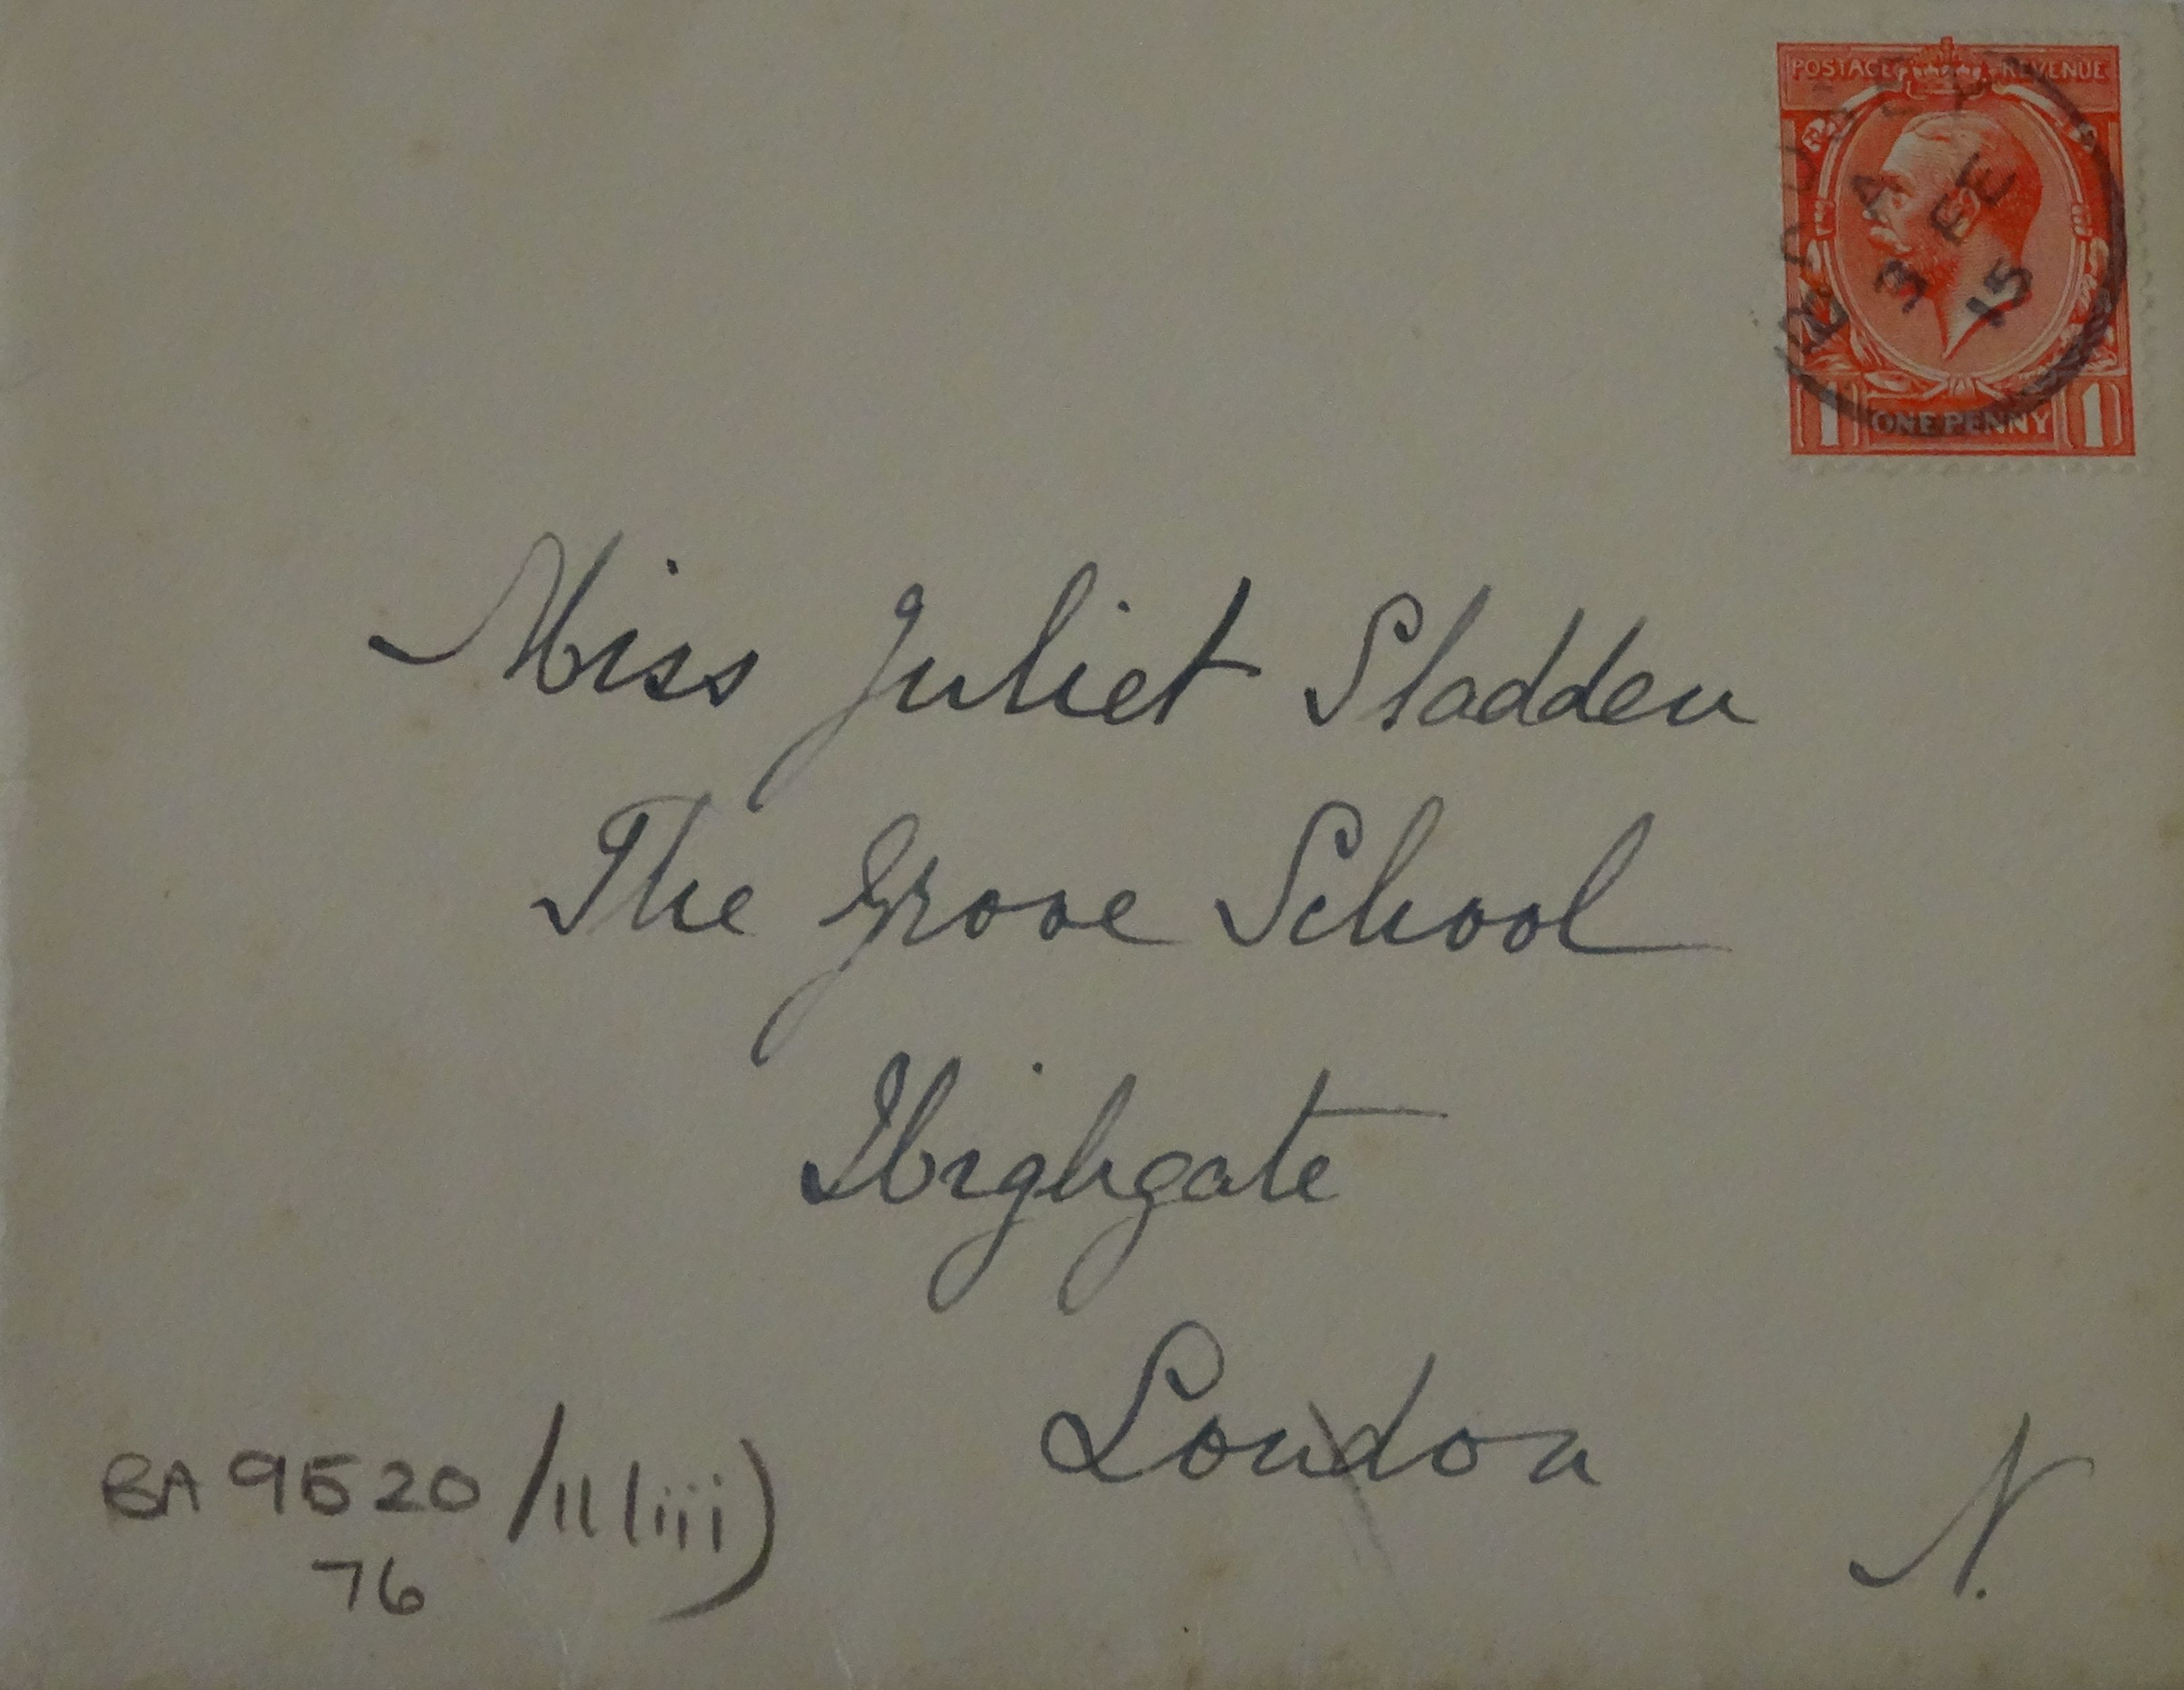 POSTAGE REVENUE
BADSEY
A
3 FE
15
1 ONE PENNY 1
Miss Juliet Sladden
The Grove School
Highgate
London
N.
BA 9520/11(iii)
76